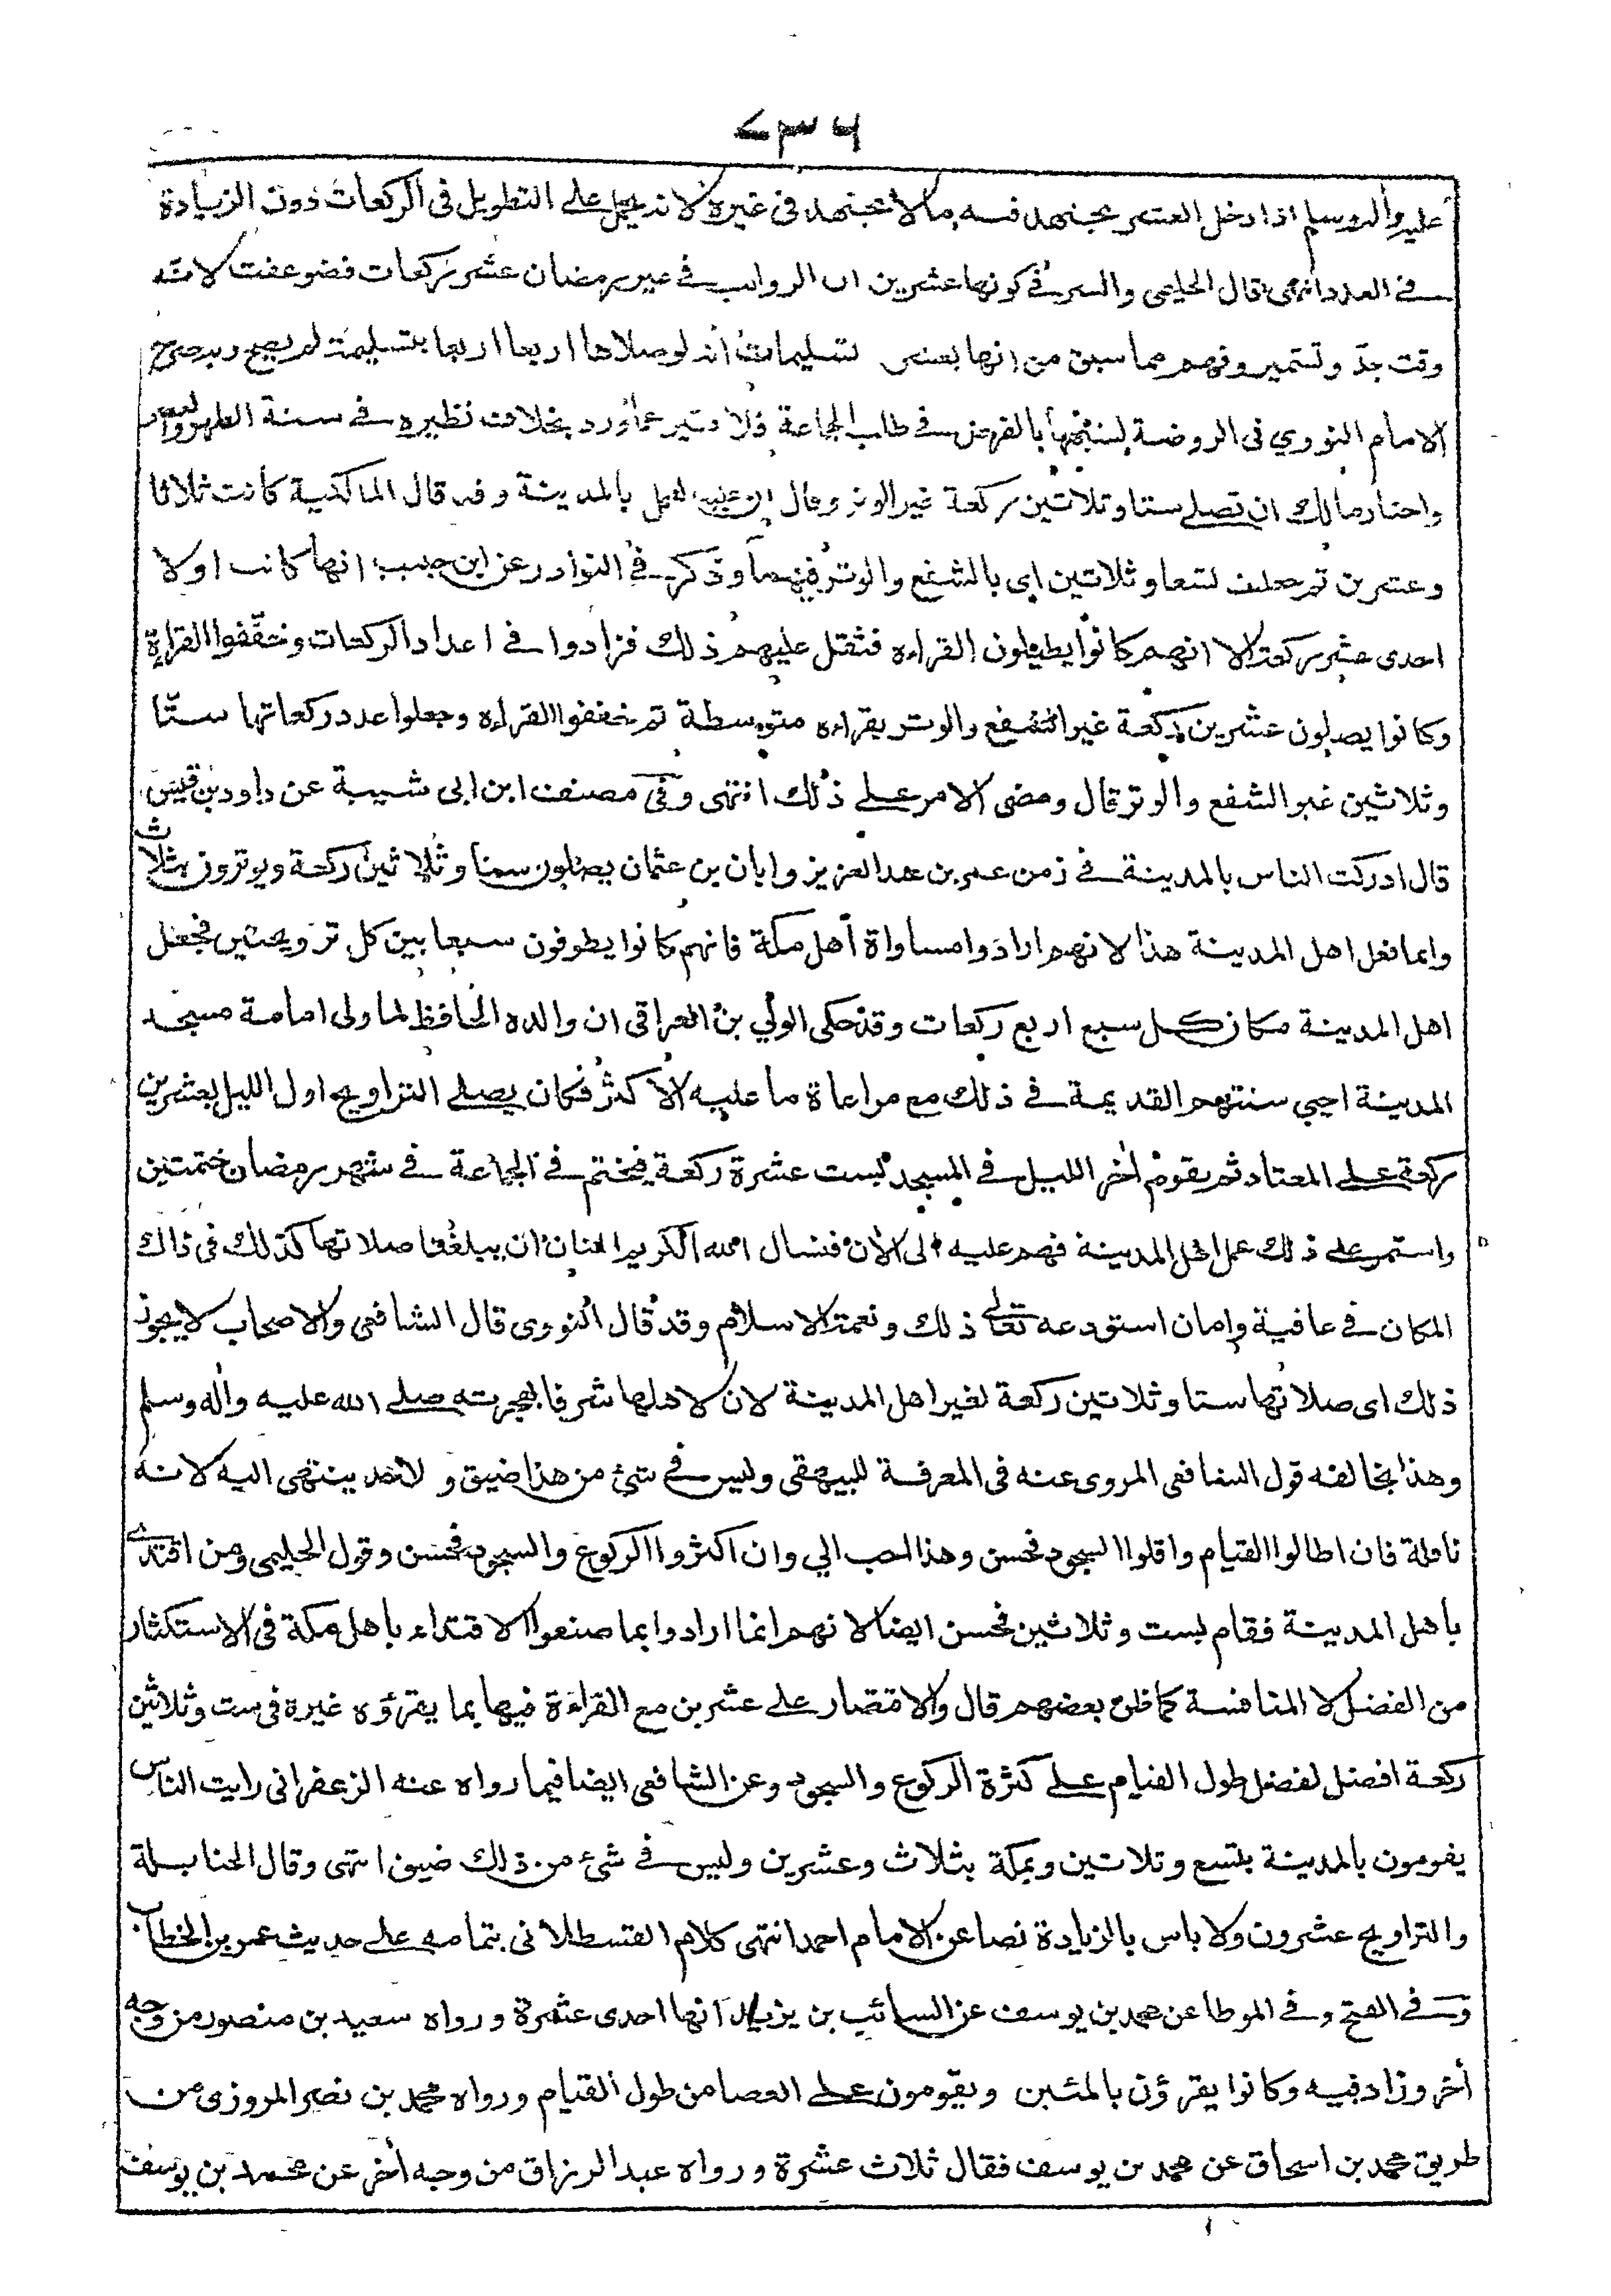 ٢٣٦
عليه وآله وسلم اذا دخل العشر يجتهد فيه ما لا يجتهد فى غيره لانه يحمل على التطويل فى الركعات دون الزيادة
فے العدد انتهى قال الحليمى والسر فے كونها عشرين ان الرواتب فے غير رمضان عشر ركعات فضوعفت لانه
وقت جدّ وتشمير وفهم مما سبق من انها بعشر تسليمات انه لو صلاها اربعا اربعا بتسليمة لم يصح وبه صرح
الامام النووي فى الروضة لشبهها بالفرض فے طلب الجماعة فلا تغير عما ورد بخلاف نظيره فے سنة الظهر والعصر
واختار مالك ان تصلے ستا وثلاثين ركعة غير الوتر وقال ان عليه العمل بالمدينة وقد قال المالكية كانت ثلاثا
وعشرين ثم جعلت تسعا وثلاثين اى بالشفع والوتر فيهما وذكر فے النوادر عن ابن حبيب انها كانت اولا
احدى عشر ركعة الا انهم كانوا يطيلون القراءه فثقل عليهم ذلك فزادوا فے اعداد الركعات وخففوا القراءة
وكانوا يصلون عشرين ركعة غير الشفع والوتر بقراءه متوسطة ثم خففوا القراءه وجعلوا عدد ركعاتها ستّا
وثلاثين غير الشفع والوتر قال ومضى الامر علے ذلك انتهى وفى مصنف ابن ابى شيبة عن داود بن قيس
قال ادركت الناس بالمدينة فے زمن عمر بن عبد العزيز وابان بن عثمان يصلون ستا وثلاثين ركعة ويوترون بثلاث
وانما فعل اهل المدينة هذا لانهم ارادوا مساواة أهل مكة فانهم كانوا يطوفون سبعا بين كل ترويحتين فجعل
اهل المدينة مكان كل سبع اربع ركعات وقد حكى الولي بن العراقى ان والده الحافظ لما ولى امامة مسجد
المدينة احيي سنتهم القديمة فے ذلك مع مراعاة ما عليه الأكثر فكان يصلے التراويح اول الليل بعشرين
ركعة علے المعتاد ثم يقوم أخر الليل فے المسجد بست عشرة ركعة فيختم فے الجماعة فے شهر رمضان ختمتين
واستمر علے ذلك عمل اهل المدينة فهم عليه الى الأن فنسال الله الكريم المنان ان يبلغنا صلاتها كذلك فى ذاك
المكان فے عافية وامان استودعه تعالى ذلك ونعمة الاسلام وقد قال النووى قال الشافعى والاصحاب لا يجوز
ذلك اى صلاتها ستا وثلاثين ركعة لغير اهل المدينة لان لاهلها شرفا بهجرته صلے الله عليه واله وسلم
وهذا يخالفه قول الشافعى المروى عنه فى المعرفة للبيهقى وليس فے شئ من هذا ضيق ولا حد ينتهى اليه لانه
نافلة فان اطالوا القيام واقلوا السجود فحسن وهذا احب الي وان اكثروا الركوع والسجود فحسن وقول الحليمى ومن اقتدى
بأهل المدينة فقام بست وثلاثين فحسن ايضا لانهم انما ارادوا بما صنعوا الاقتداء بأهل مكة فى الاستكثار
من الفضل لا المنافسة كما ظن بعضهم قال والاقتصار على عشرين مع القراءة فيها بما يقرؤه غيره فى ست وثلاثين
ركعة افضل لفضل طول القيام علے كثرة الركوع والسجود وعن الشافعى ايضا فيما رواه عنه الزعفرانى رايت الناس
يقومون بالمدينة بتسع وثلاثين وبمكة بثلاث وعشرين وليس فے شئ من ذلك ضيق انتهى وقال الحنابلة
والتراويح عشرون ولا باس بالزيادة نصا عن الامام احمد انتهى كلام القسطلانى بتمامه علے حديث عمر بن الخطاب
وفے الفتح وفے الموطا عن محمد بن يوسف عن السائب بن يزيد انها احدى عشرة ورواه سعيد بن منصور من وجه
أخر وزاد فيه وكانوا يقرؤن بالمئين ويقومون علے العصا من طول القيام ورواه محمد بن نصر المروزى من
طريق محمد بن اسحاق عن محمد بن يوسف فقال ثلاث عشرة ورواه عبد الرزاق من وجه أخر عن محمد بن يوسف